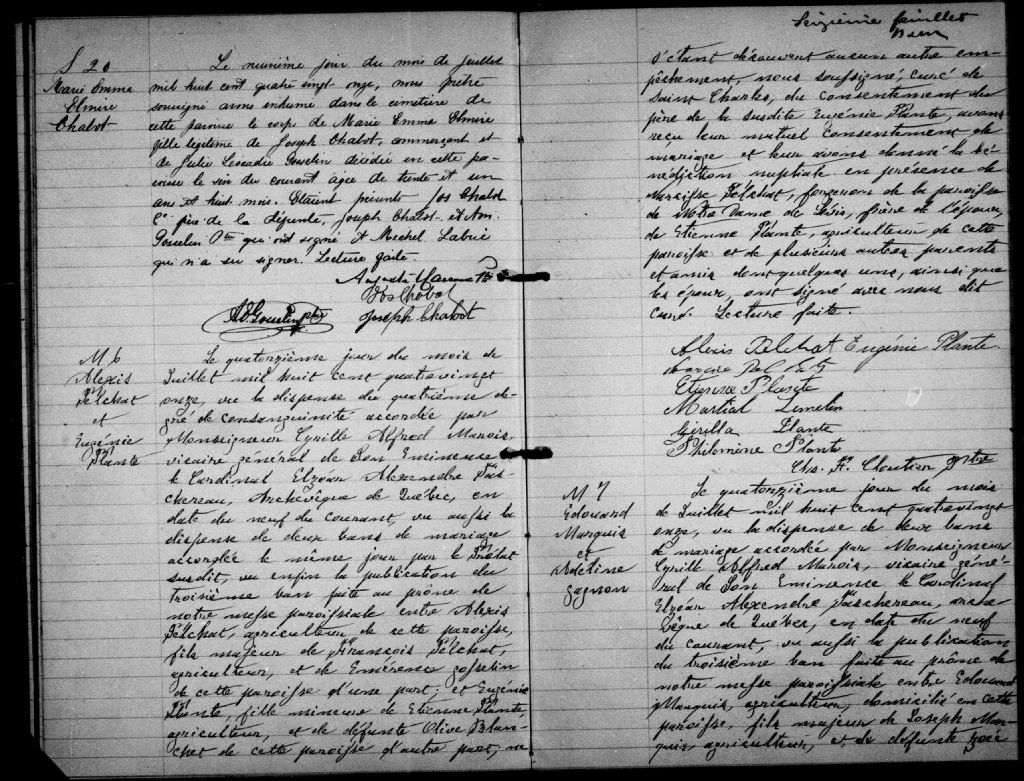 S 20
Marie Emma
Elmire
Chabot
Le neuvième jour du mois de juillet
mil huit cent quatre vingt onze, nous prêtre
soussigné avons inhumé dans le cimetière de
cette paroisse le corps de Marie Emma Elmire
fille légitime de Joseph Chabot, commerçant et
de Julie Leocadie Gosselin décédée en cette pa-
roisse le six du courant agée de trente et un
ans et huit mois. Etaient présents Jos Chabot
père de la défunte, Joseph Chabot et Am.
Gosselin Ptre qui ont signé et Michel Labrie
qui n'a su signer. Lecture faite.
Auguste
Jos Chabot
A. Gosselin ptre Joseph Chabot
M 6
Alexis
Pélchat
et
Eugénie
Plante
Le quatorzième jour du mois de
Juillet mil huit cent quatrevingt
onze, vu la dispense du quatrième de-
gré de consanguinité accordée par
Monseigneur Cyrille Alfred Marois,
vicaire général de Son Eminence
le Cardinal Elzéar Alexandre Tas-
chereau, Archevêque de Québec, en
date du neuf du courant, vu aussi la
dispense de deux bans de mariage
accordée le même jour par le Prélat
susdit, vu enfin la publication du
troisième ban faite au prône de
notre messe paroissiale entre Alexis
Pélchat, agriculteur de cette paroisse,
fils majeur de François Pélchat,
agriculteur, et de Emérence Gosselin
de cette paroisse d'une part; et Eugénie
Plante, fille mineure de Etienne Plante,
agriculteur, et de défunte Olive Blan-
chet de cette paroisse d'autre part; ne
Seizième feuillet
s'étant découvert aucun autre em-
pêchement, nous soussigné, curé de
Saint Charles, du consentement du
père de la susdite Eugénie Plante, avons
reçu leur mutuel consentement de
mariage et leur avons donné la bé-
nédiction nuptiale en présence de
Narcisse Pélchat, forgeron de la paroisse
de Notre Dame de Lévis, frère de l'époux,
de Etienne Plante, agriculteur de cette
paroisse et de plusieurs autres parents
et amis dont quelques uns, ainsi que
les époux, ont signé avec nous dit
curé. Lecture faite.
Alexis Pelchat Eugénie Plante
Etienne Plante
Martial Lemelin
Plante
Philomène Plante
Chs. A. Cloutier ptre
M 7
Edouard
Marquis
et
Adéline
Gagnon
Le quatorzième jour du mois
de Juillet mil huit cent quatrevingt
onze, vu la dispense de deux bans
de mariage accordée par Monseigneur
Cyrille Alfred Marois, vicaire géné-
ral de Son Eminence le Cardinal
Elzéar Alexandre Taschereau, arche
vêque de Québec, en date du neuf
du courant, vu aussi la publication
du troisième ban faite au prône de
notre messe paroissiale entre Edouard
Marquis, agriculteur, domicilié en cette
paroisse, fils majeur de Joseph Mar-
quis, agriculteur, et de défunte Zoé